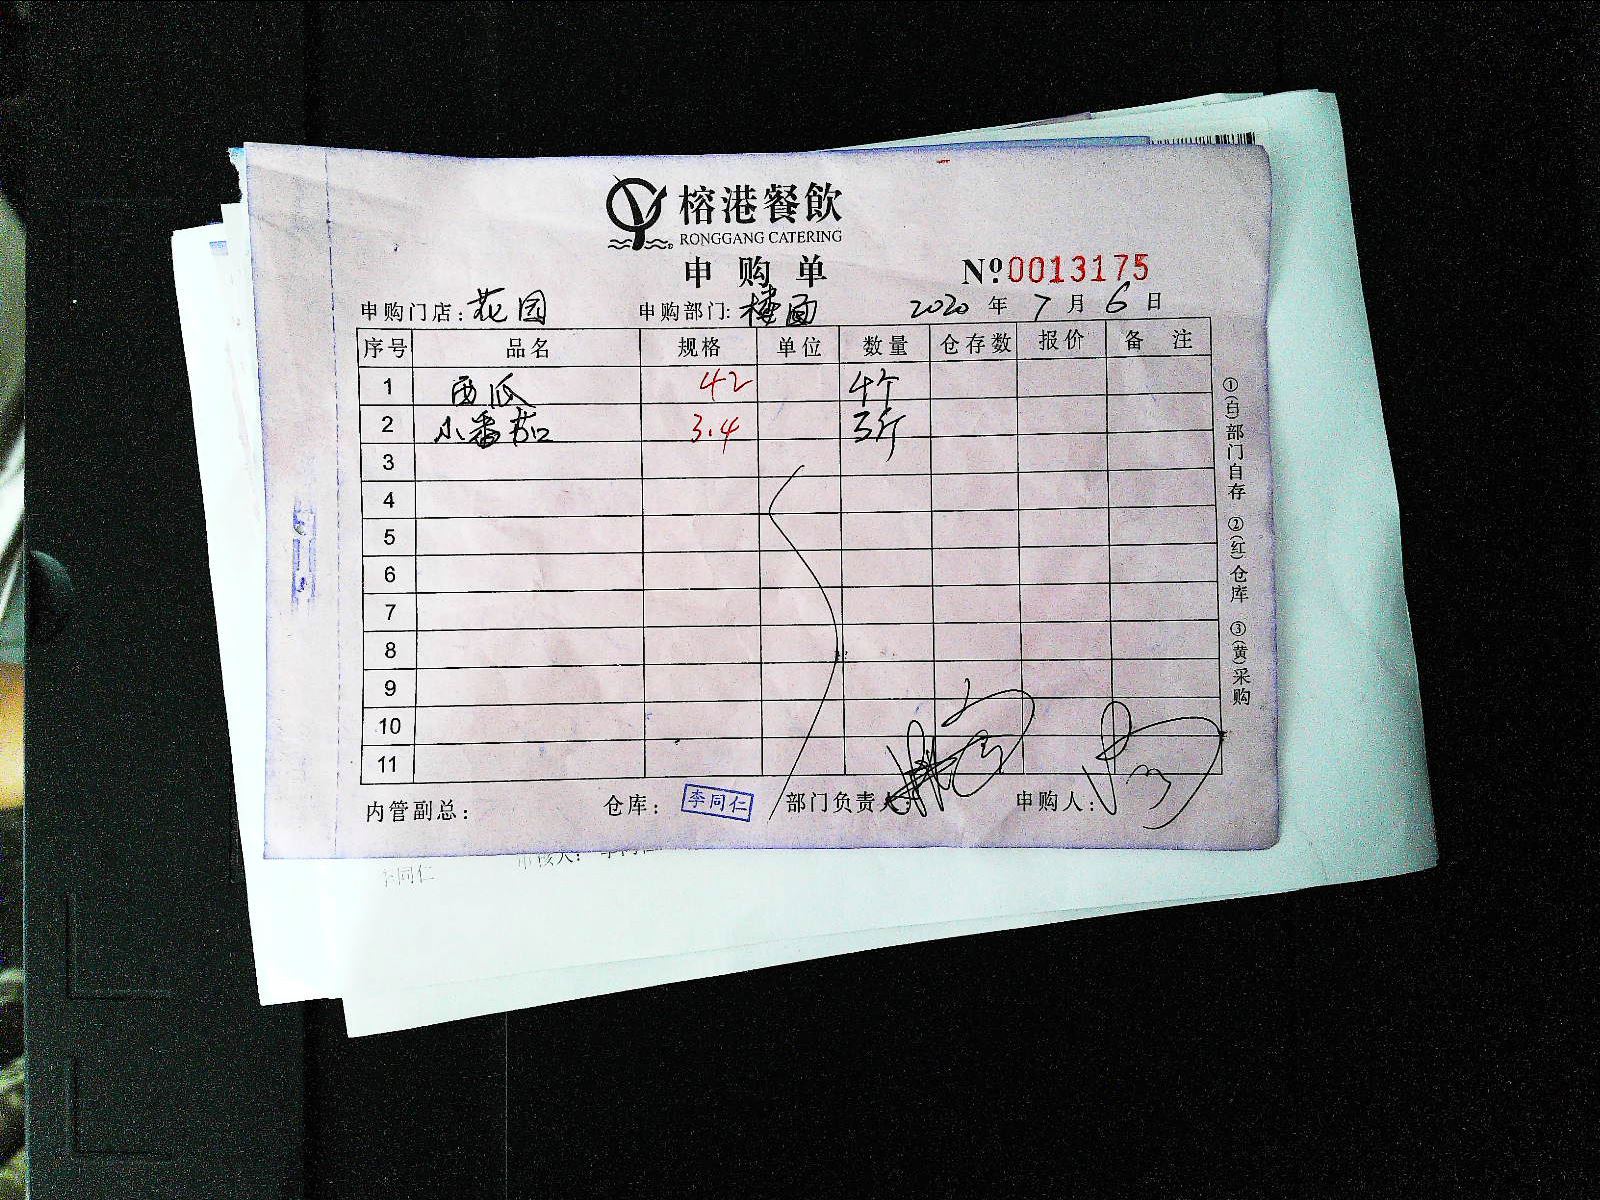 榕港餐飲
RONGGANG CATERING
申购单
Nº.0013175
申购门店: 花园 申购部门: 楼面 2020 年 7 月 6 日
序号 品名 规格 单位 数量 仓存数 报价 备 注
1 西瓜 42 4个
2 小番茄 3.4 3斤
3
4
5
6
7
8
9
10
11
内管副总: 仓库: 李同仁 部门负责人: 申购人:
①(白)部门自存 ②(红)仓库 ③(黄)采购
审核人:
李同仁